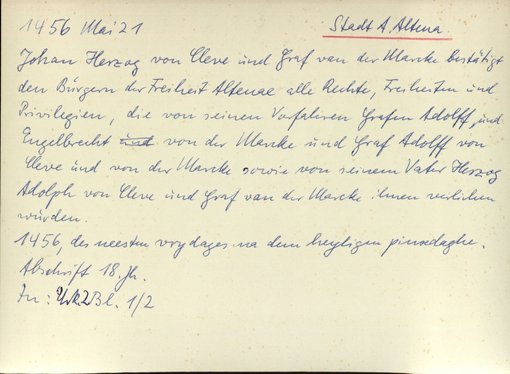 1456 Mai 21
Stadt A. Altena
Johan Herzog von Cleve und Graf van der Marcke bestätigt
den Bürgern der Freiheit Altenae alle Rechte, Freiheiten und
Privilegien, die von seinen Vorfahren Grafen Adolff, und
Engelbrecht und von der Marcke und Graf Adolff von
Cleve und von der Marcke sowie von seinem Vater Herzog
Adolph von Cleve und Graf van der Marcke ihnen verliehen
wurden.
1456, des neesten vrydages na dem heyligen pinxedaghe.
Abschrift 18. Jh.
In: Urk. 2 Bl. 1/2